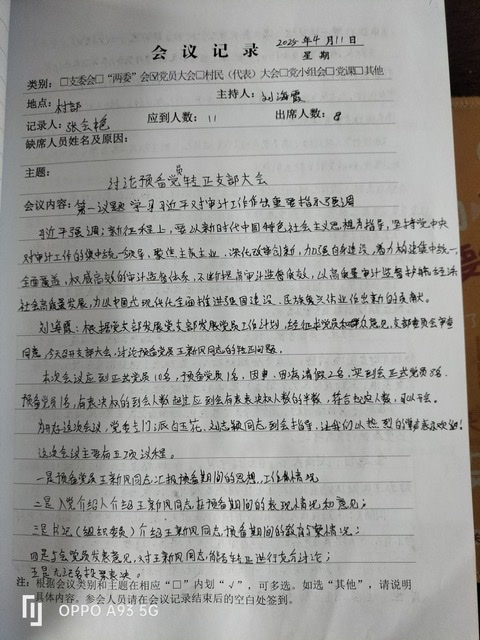 会议记录
2025年4月11日
星期
类别：□支委会□“两委”会☑党员大会□村民（代表）大会□党小组会□党课□其他
地点：村部 主持人：刘海霞
记录人：张会艳 应到人数：11 出席人数：8
缺席人员姓名及原因：
主题：
讨论预备党员转正支部大会
会议内容：第一议题 学习习近平对审计工作作出重要指示强调
习近平强调：新征程上，要以新时代中国特色社会主义思想为指导，坚持党中央
对审计工作的集中统一领导，聚焦主责主业，深化改革创新，加强自身建设，着力构建集中统一、
全面覆盖、权威高效的审计监督体系，不断提高审计监督质效，以高质量审计监督护航经济
社会高质量发展，为以中国式现代化全面推进强国建设、民族复兴伟业作出新的贡献。
刘海霞：根据党支部发展党支部发展党员工作计划，经征求党员和群众意见，支部委员会审查
同意，今天召开支部大会，讨论预备党员王新风同志的转正问题。
本次会议应到正式党员10名，预备党员1名，因事、因病请假2名，实到会正式党员8名，
预备党员1名，有表决权的到会人数超过应到会有表决权人数的半数，符合规定人数，可以开会。
为开好这次会议，党委专门派白玉花、刘志颖同志到会指导，让我们以热烈的掌声表示欢迎！
这次会议主要有五项议程。
一是预备党员王新风同志汇报预备期间的思想、工作等情况
二是入党介绍人介绍王新风同志在预备期间的表现情况和意见；
三是书记（组织委员）介绍王新风同志预备期间的教育考察情况；
四是与会党员发表意见，对王新风同志能否转正进行充分讨论；
五是无记名投票表决。
注：根据会议类别和主题在相应“□”内划“√”，可多选。如选“其他”，请说明
具体内容。参会人员请在会议记录结束后的空白处签到。
OPPO A93 5G